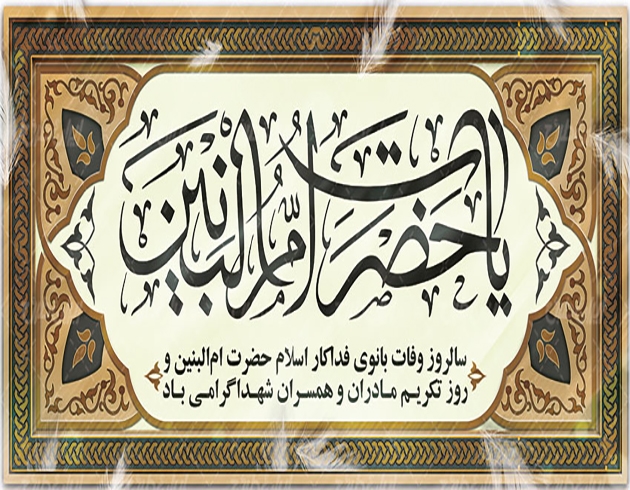 یا حضرت ام البنین
سالروز وفات بانوی فداکار اسلام حضرت ام‌البنین و
روز تکریم مادران و همسران شهدا گرامی باد